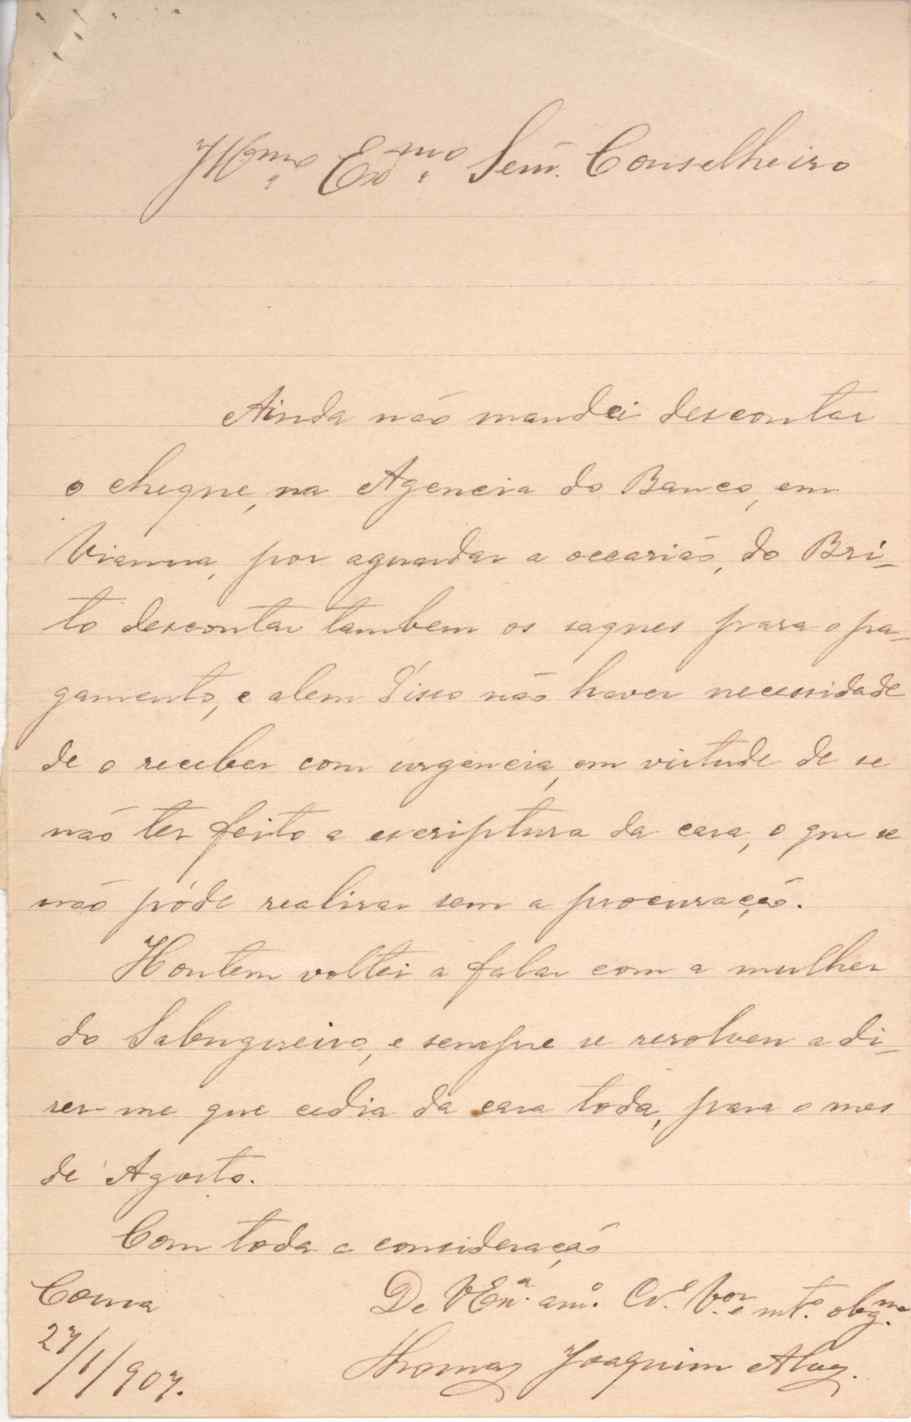 Illmo. Exmo. Senr. Conselheiro
Ainda não mandei descontar
o cheque, na Agencia do Banco, em
Vianna, por aguardar a occasião, do Bri-
to descontar tambem os saques para o pa-
gamento, e alem d'isso não haver necessidade
de o receber com urgencia, em virtude de se
não ter feito a escriptura da casa, o que se
não póde realisar sem a procuração.
Hontem voltei a falar com a mulher
do Sabugueiro, e sempre se resolveu a di-
zer-me que cedia da casa toda, para o mes
de Agosto.
Com toda a consideração
De V Exa. amo. Cro. Vor. e mto. obgmo.
Coura
27/1/907.
Thomaz Joaquim Alvz.